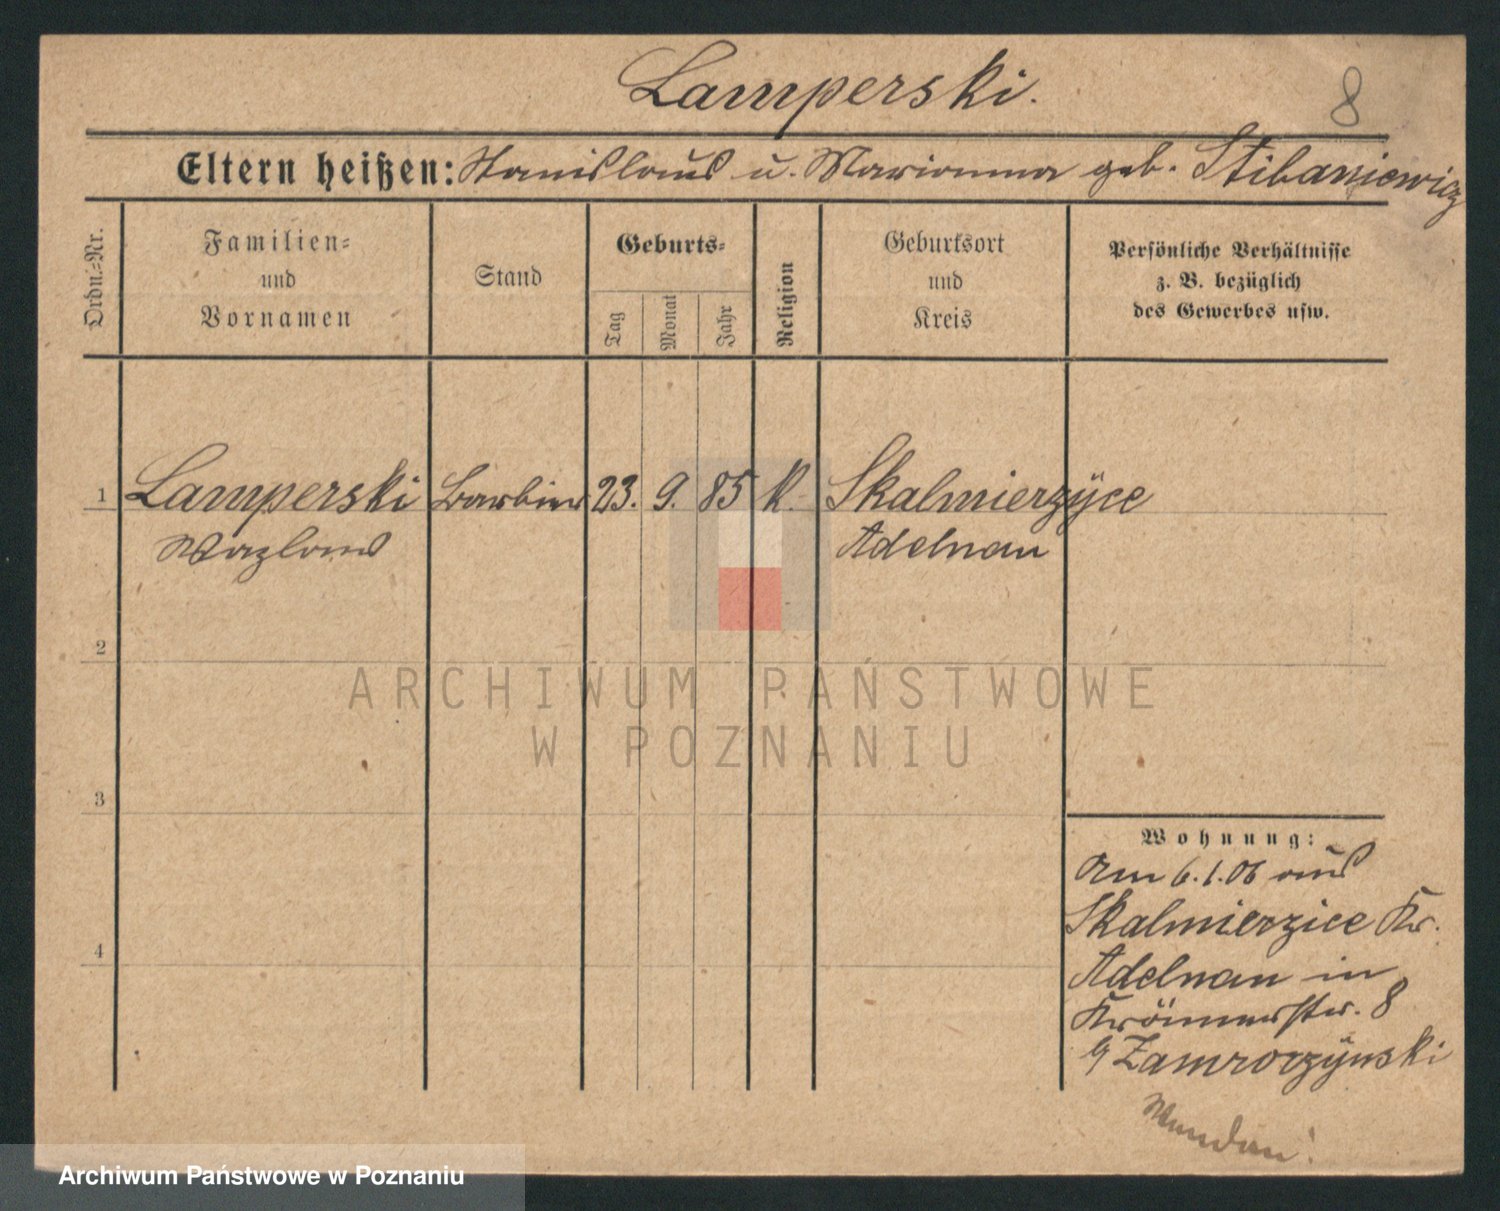 Lamperski.
8
Eltern heißen: Stanislaus u. Marianna geb. Stibaniewicz
Ordn.-Nr.
Familien-
und
Vornamen
Stand
Geburts-
Tag
Monat
Jahr
Religion
Geburtsort
und
Kreis
Persönliche Verhältnisse
z. B. bezüglich
des Gewerbes usw.
1 Lamperski Barbier 23. 9. 85 K. Skalmierzÿce
Wazlaus Adelnau
2
ARCHIWUM PAŃSTWOWE
W POZNANIU
3
Wohnung:
Am 6.1.06 aus
Skalmierzice Kr.
4
Adelnau in
8
Archiwum Państwowe w Poznaniu